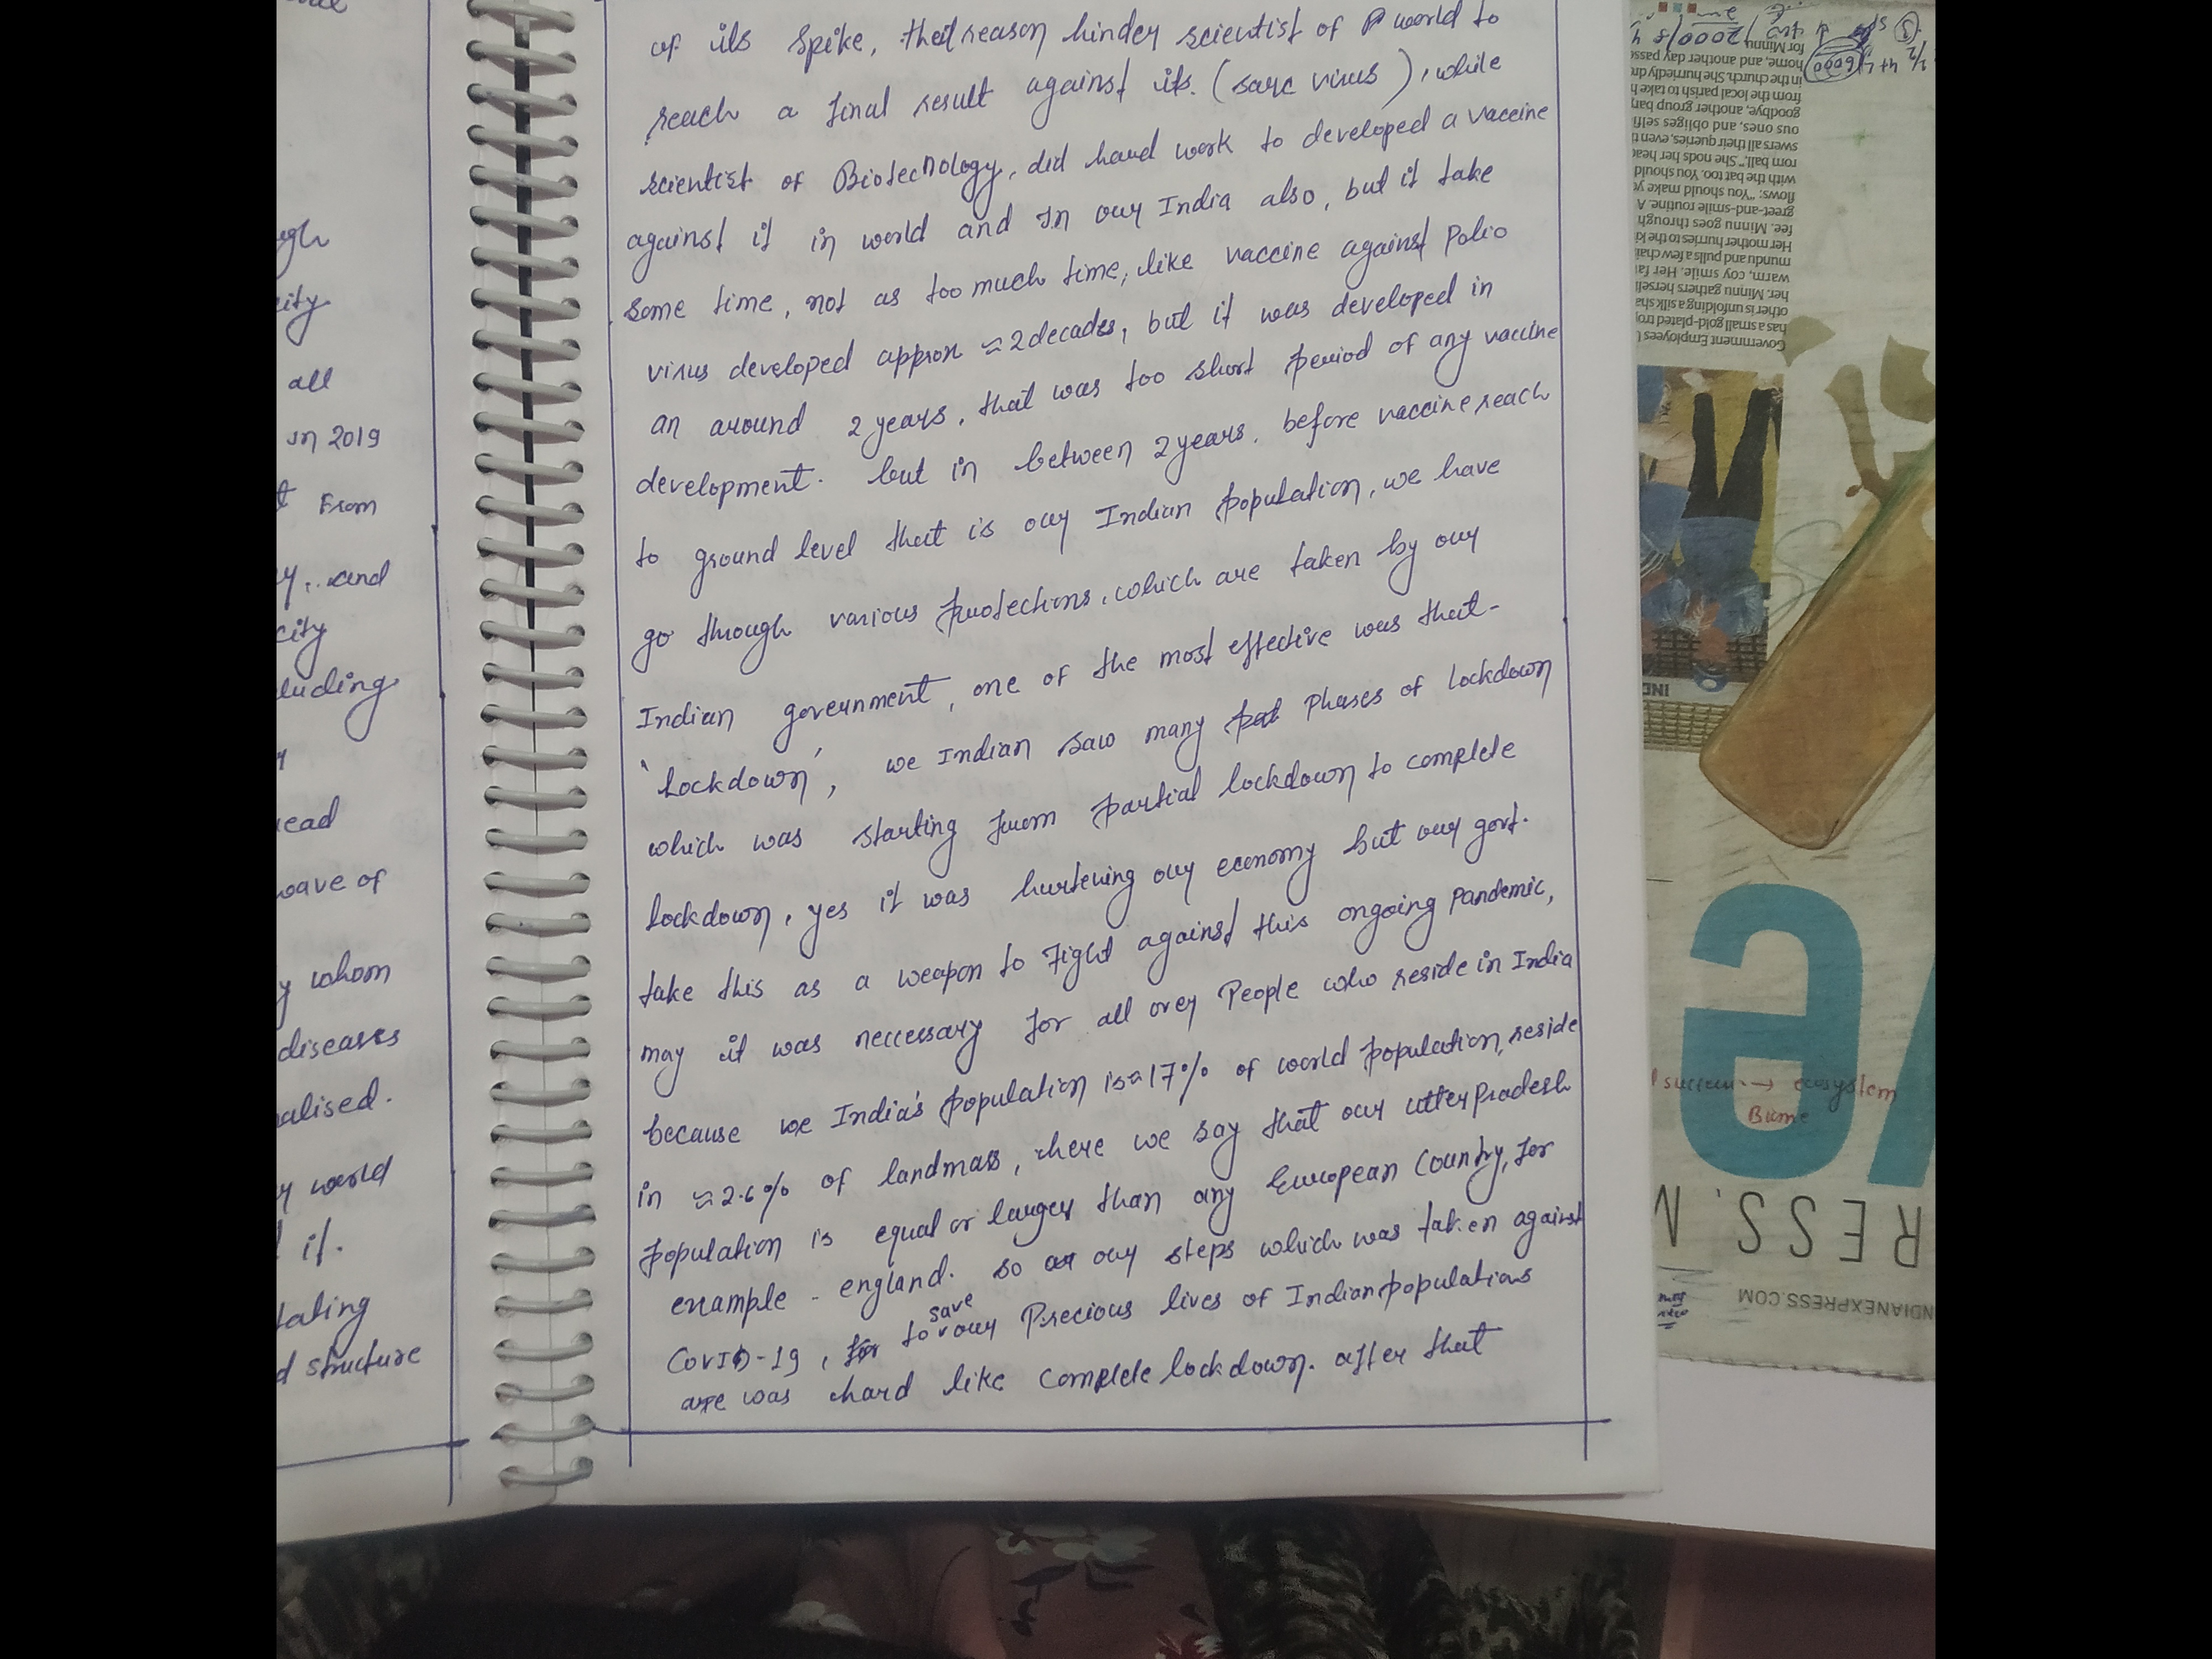 ugh
city
all
in 2019
t From
y, and
city
cluding
y
read
wave of
y whom
diseases
nalised.
r world
d it.
tating
d structure
of its spike, that reason hinder scientist of world to
reach a final result against its. (sarc virus), while
scientist of Biotecnology, did hard work to developed a vaccine
against it in world and In our India also, but it take
some time, not as too much time, like vaccine against Polio
virus developed approx ≈2 decades, but it was developed in
an around 2 years, that was too short period of any vaccine
development. but in between 2 years. before vaccine reach
to ground level that is our Indian population, we have
go through various protections, which are taken by our
Indian government, one of the most effective was that-
'Lockdown', we Indian saw many Phases of lockdown
which was starting from partial lockdown to complete
lockdown, yes it was hurtening our economy but our govt.
take this as a weapon to Fight against this ongoing Pandemic,
may it was neccessary for all over People who reside in India
because we India's population is≈17% of world population, reside
in ≈2.6% of landmass, here we say that our utter Pradesh
population is equal or larger than any European Country, for
example - england. so our steps which was taken against
COVID-19, to save our Precious lives of Indian populations
are was hard like complete lockdown. after that
Government Employees
has a small gold-plated tro
other is unfolding a silk sha
her. Minnu gathers hersel
warm, coy smile. Her fa
mundu and pulls a few chai
Her mother hurries to the ki
fee. Minnu goes through
greet-and-smile routine. A
flows: "You should make y
with the bat too. You should
rom ball," She nods her head
swers all their queries, even t
ous ones, and obliges selfi
goodbye, another group bar
from the local parish to take h
in the church. She hurriedly dr
home, and another day passe
for Minnu
6000
2000
IND
ve
ecosystem
Biome
RESS. N
NDIANEXPRESS.COM